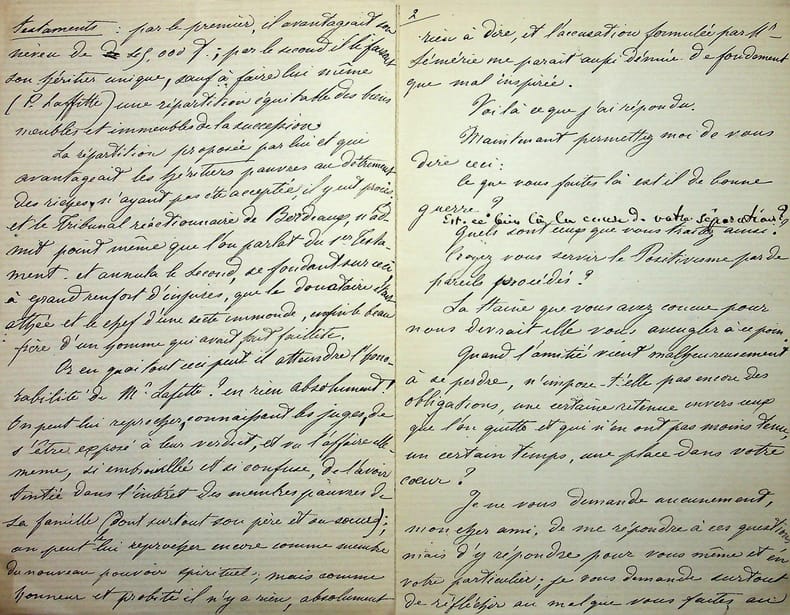 testaments : par le premier, il avantageait son
neveu de 25,000 f. ; par le second il le faisait
son héritier unique, sauf à faire lui même
(P. Laffitte) une répartition équitable des biens
meubles et immeubles de la succession.
La répartition proposée par lui et qui
avantageait les héritiers pauvres au détriment
des riches, n'ayant pas été acceptée, il y eut procès
et le Tribunal réactionnaire de Bordeaux, n'ad-
mit point même que l'on parlât du 1er Testa-
ment et annula le second, se fondant sur ceci
à grand renfort d'injures, que le donataire était
athée et le chef d'une secte immonde, enfin le beau
frère d'un homme qui avait fait faillite.
Or en quoi tout ceci peut il atteindre l'hono-
rabilité de Mr Lafitte ? en rien absolument !
On peut lui reprocher, connaissant les juges, de
s'être exposé à leur verdict, et vu l'affaire elle-
même, si embrouillée et si confuse, de l'avoir
tentée dans l'intérêt des membres pauvres de
sa famille (dont surtout son père et sa sœur) ;
on peut lui reprocher encore comme membre
du nouveau pouvoir spirituel ; mais comme
honneur et probité il n'y a rien, absolument
2
rien à dire, et l'accusation formulée par Mr
Sémérie me parait aussi dénuée de fondement
que mal inspirée.
Voilà ce que j'ai répondu.
Maintenant permettez moi de vous
dire ceci :
Ce que vous faites là est il de bonne
guerre ?
Est-ce bien là la cause de votre séparation ?
Quels sont ceux que vous traitez ainsi ?
Croyez vous servir le Positivisme par de
pareils procédés ?
La Haine que vous avez conçue pour
nous devrait elle vous aveugler à ce point
Quand l'amitié vient malheureusement
à se perdre, n'impose-t'elle pas encore des
obligations, une certaine retenue envers ceux
que l'on quitte et qui n'en ont pas moins tenu,
un certain temps, une place dans votre
cœur ?
Je ne vous demande aucunement,
mon cher ami, de me répondre à ces questions
mais d'y répondre pour vous même et en
votre particulier ; je vous demande surtout
de réfléchir au mal que vous faites au